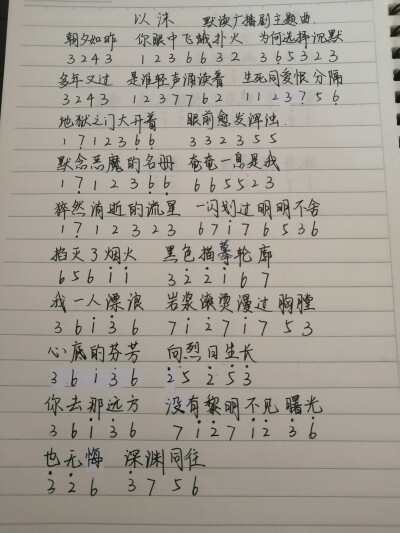 以沫 默读广播剧主题曲.
朝夕如昨 你眼中飞蛾扑火 为何选择沉默
3 2 4 3 1 2 3 6 6 3 2 3 6 5 3 2 3
多年又过 是谁轻声诵读着 生死同爱恨分隔
3 2 4 3 1 2 3 7 7 6 2 1 1 2 3 7 5 6
地狱之门大开着 眼前愈发浑浊.
1 7 1 2 3 6 6 3 3 2 3 5 5
默念恶魔的名册 奄奄一息是我
1 7 1 2 3 6 6 6 6 5 5 2 3
猝然消逝的流星 一闪划过明明不舍
1 7 1 2 3 2 3 6 7 i 7 6 5 3 6
掐灭了烟火 黑色描摹轮廓
6 5 6 i i 3 2 2 i 6 7
我一人漂浪 岩浆滚烫漫过胸膛
3 6 i 3 6 7 i 2 7 i 7 5 3
心底的芬芳 向烈日生长
3 6 i 3 6 2 5 2 5 3
你去那远方 没有黎明不见曙光
3 6 i 3 6 7 i 2 7 i 2 3 6
也无悔 深渊同往
3 2 6 3 7 5 6